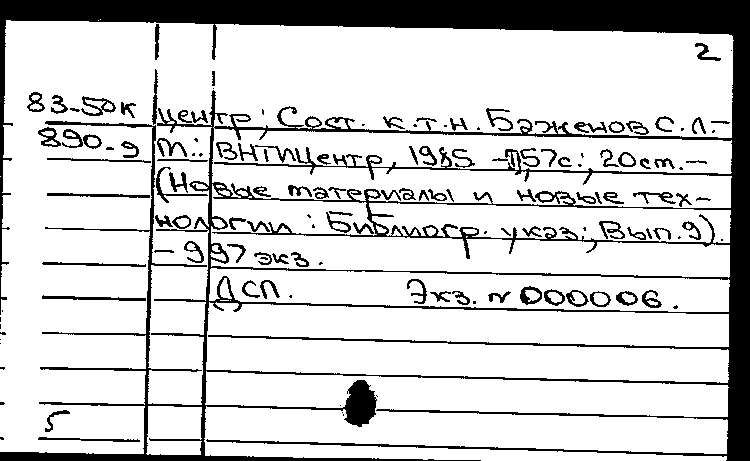 2
83-50к центр; Сост. к.т.н. Баженов С.Л.-
890-9 М.: ВНТИЦентр, 1985. - 157с.; 20см.-
(Новые материалы и новые тех-
нологии : Библиогр. указ.; Вып.9).
- 997 экз.
ДСП. Экз. № 000006.
5